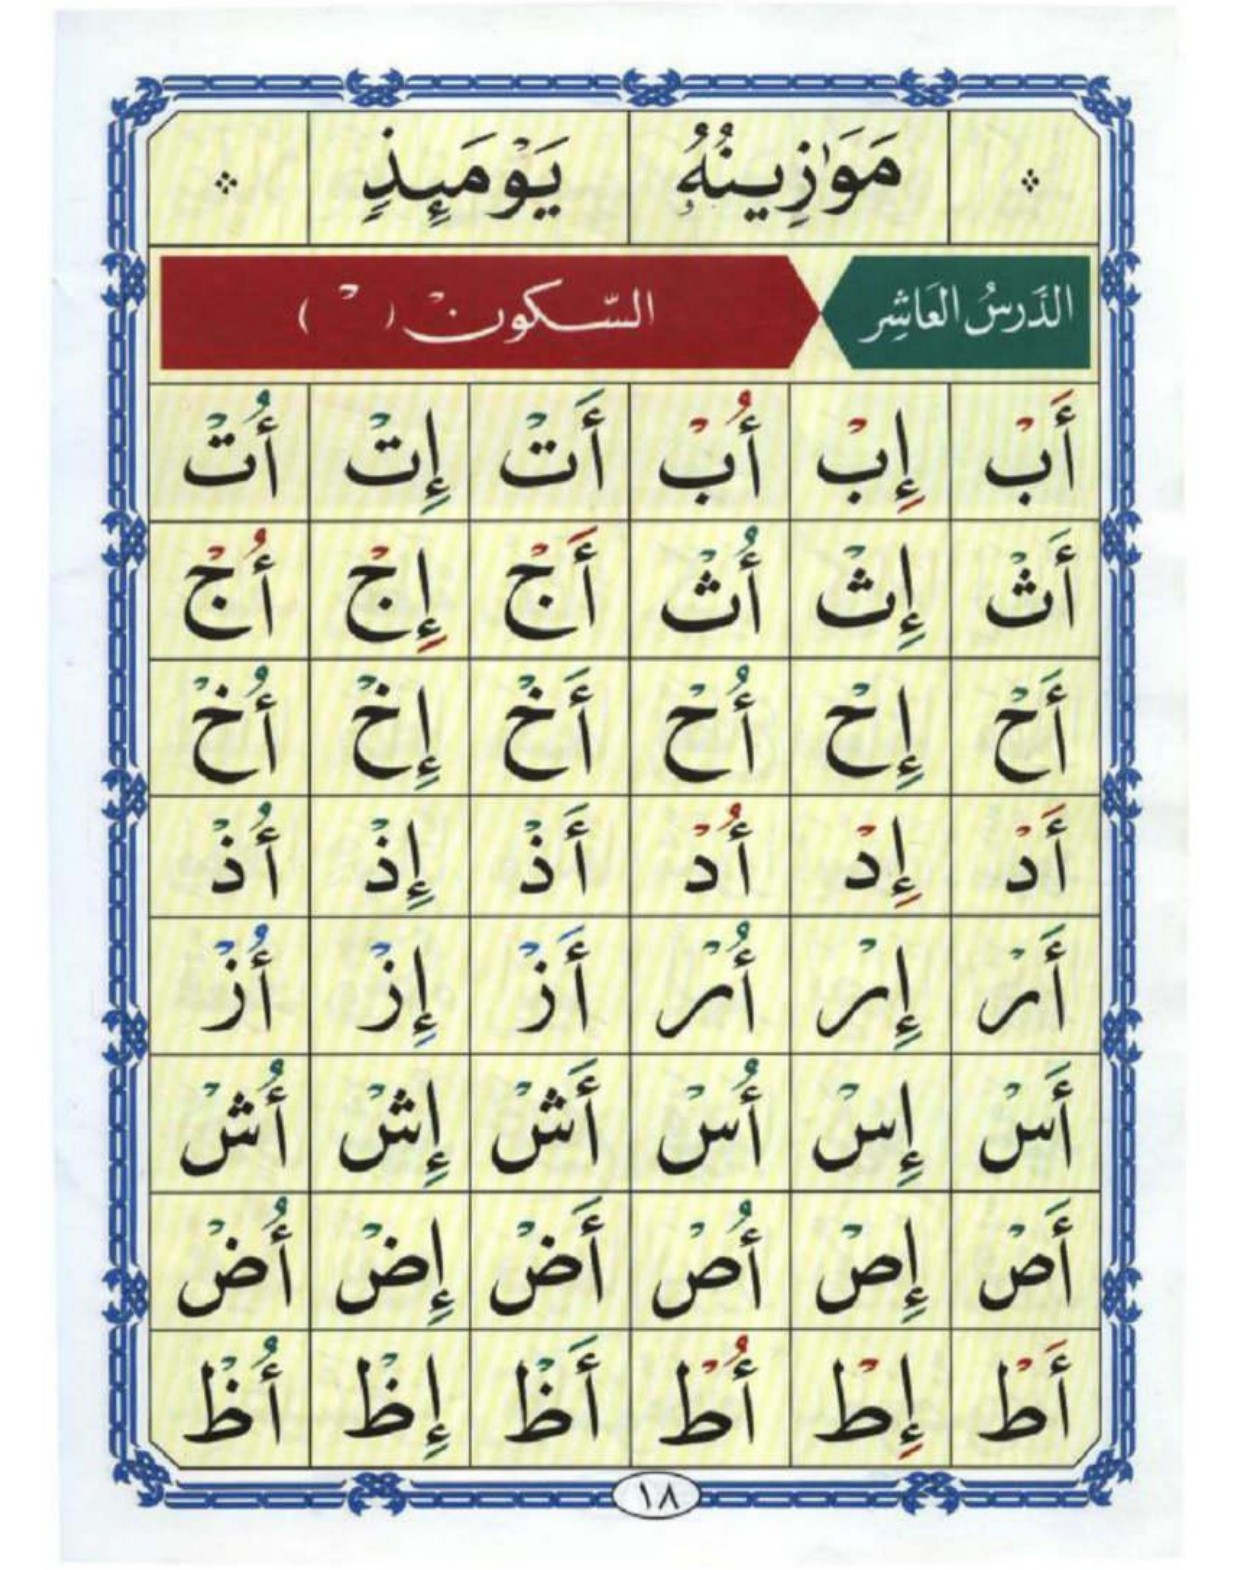 مَوَٰزِينُهُۥ يَوْمَئِذٍ
الدَّرسُ العَاشِر السّكون ( ْ )
أَبْ إِبْ أُبْ أَتْ إِتْ أُتْ
أَثْ إِثْ أُثْ أَجْ إِجْ أُجْ
أَحْ إِحْ أُحْ أَخْ إِخْ أُخْ
أَدْ إِدْ أُدْ أَذْ إِذْ أُذْ
أَرْ إِرْ أُرْ أَزْ إِزْ أُزْ
أَسْ إِسْ أُسْ أَشْ إِشْ أُشْ
أَصْ إِصْ أُصْ أَضْ إِضْ أُضْ
أَطْ إِطْ أُطْ أَظْ إِظْ أُظْ
١٨